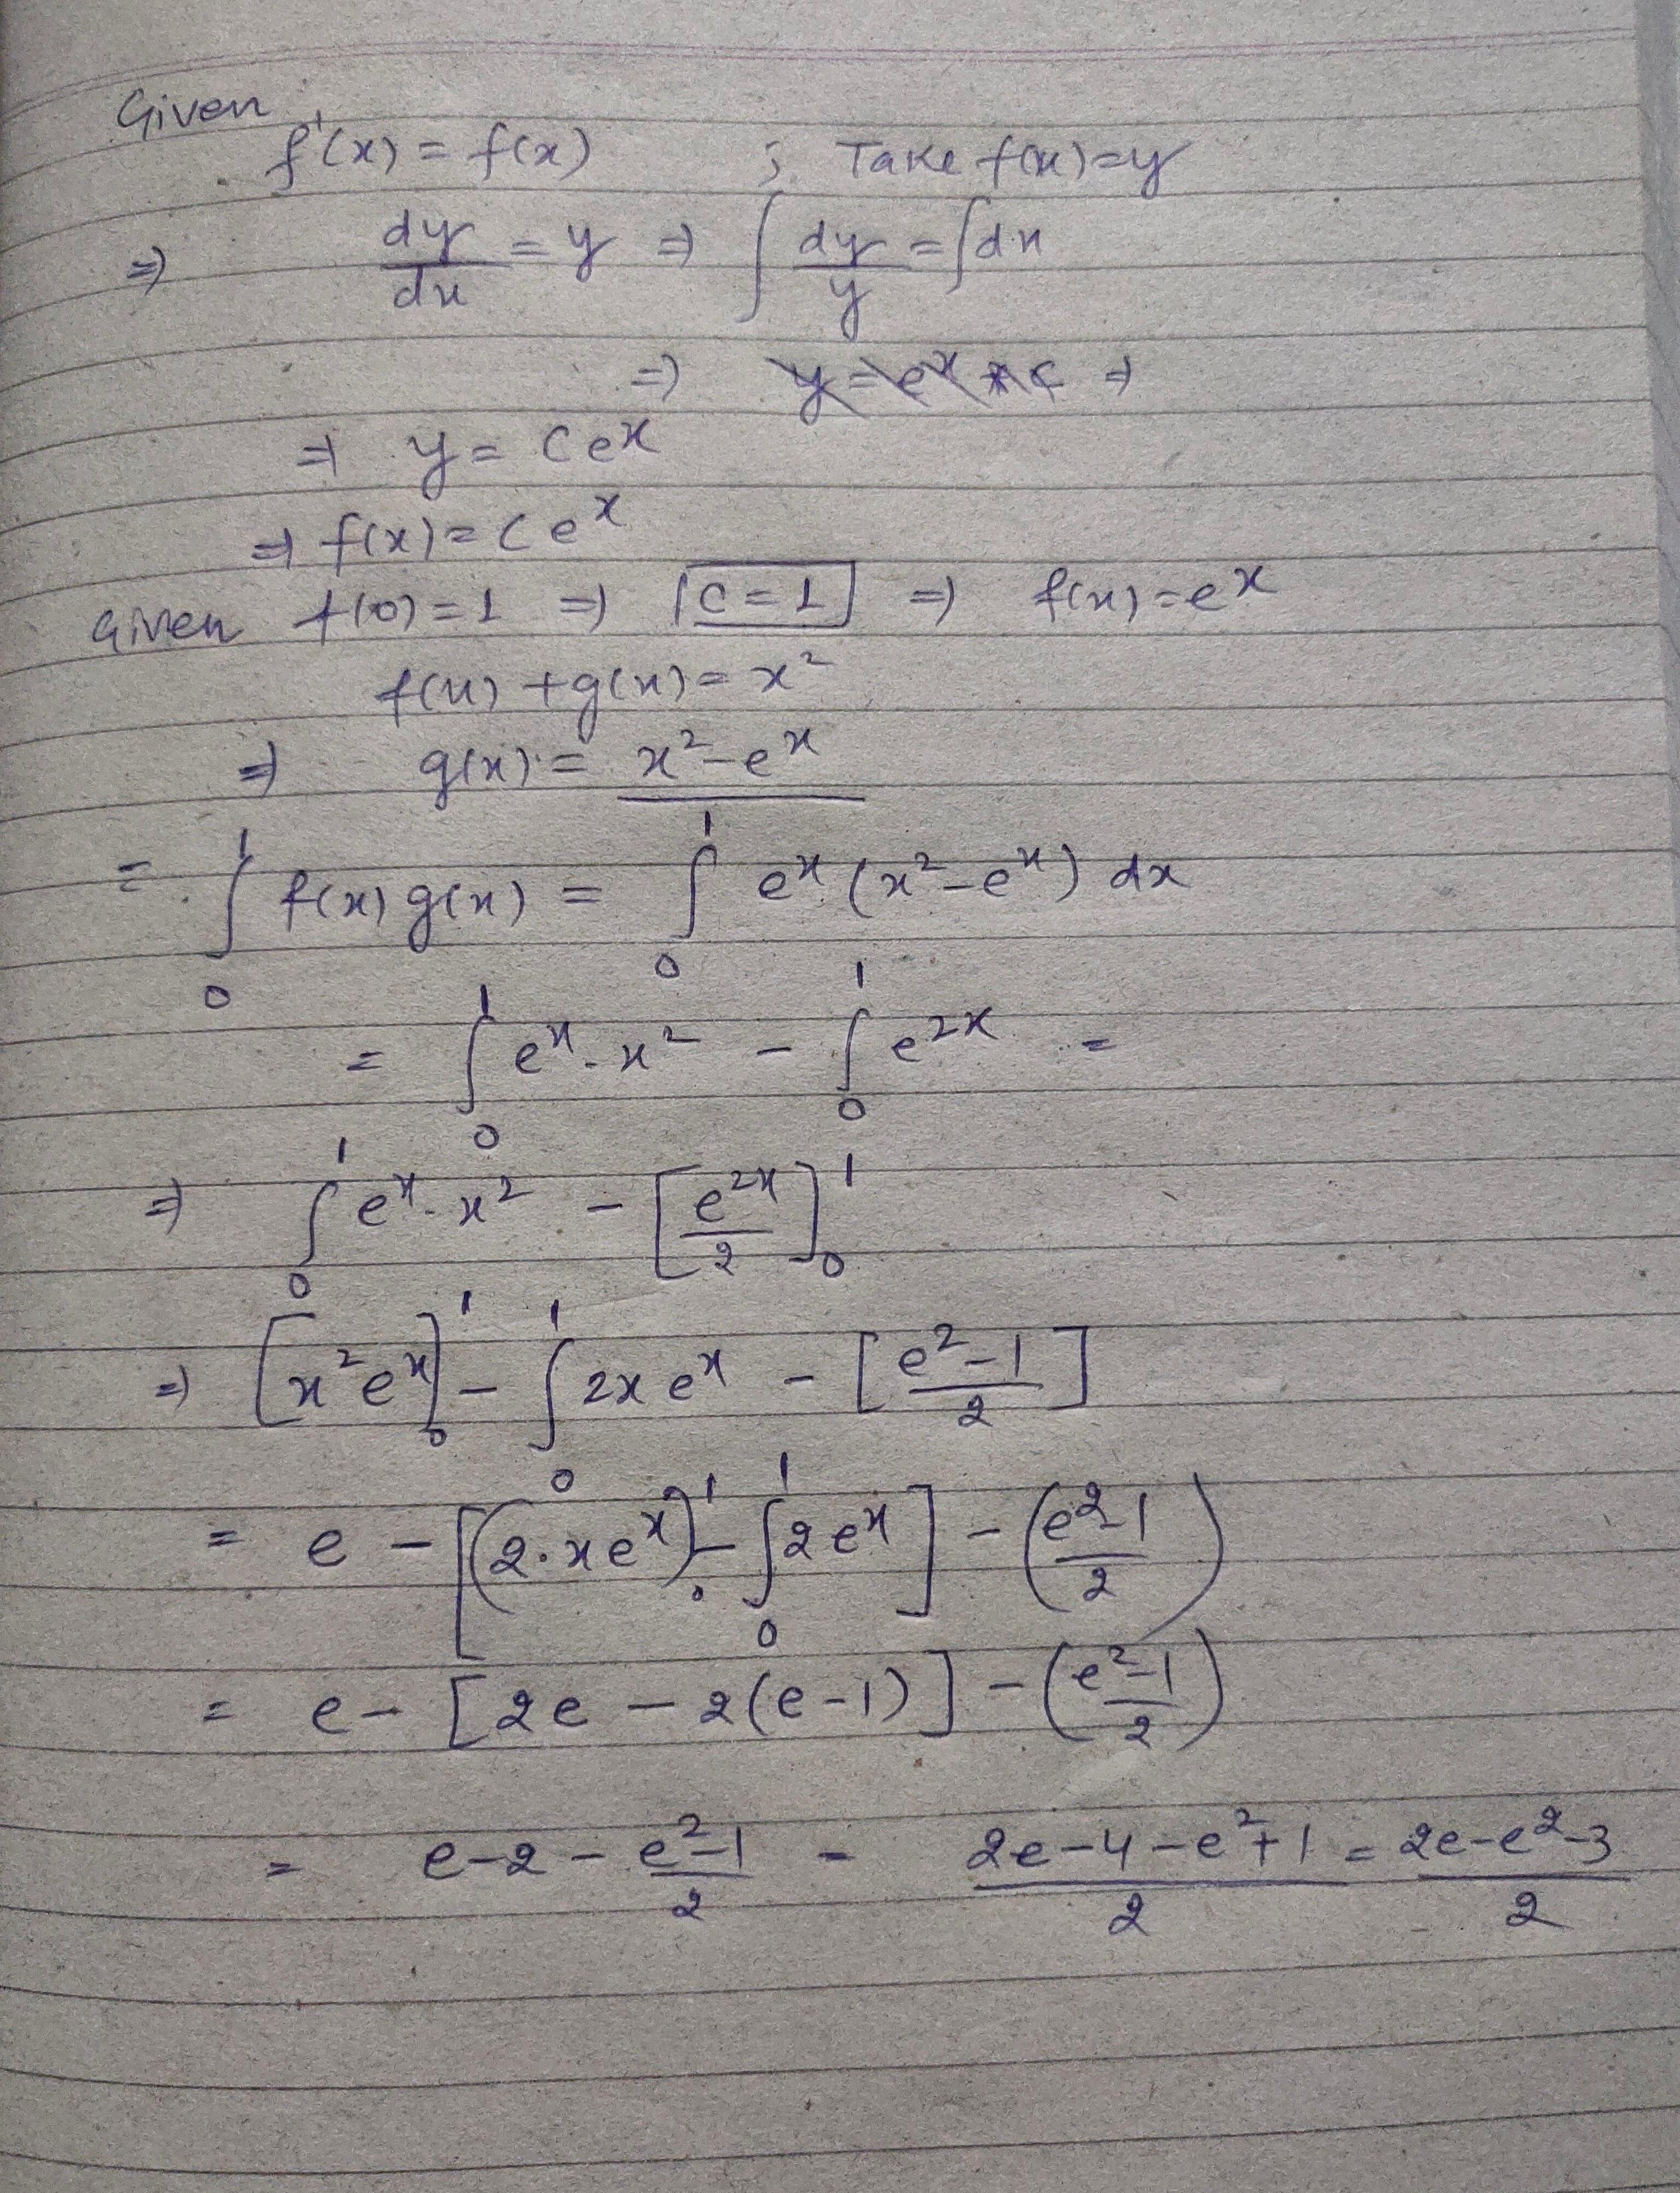 Given
f'(x) = f(x) ; Take f(x)=y
⇒ dy/dx = y ⇒ ∫ dy/y = ∫dx
⇒ y = e^x * c ⇒
⇒ y = Ce^x
⇒ f(x) = Ce^x
Given f(0)=1 ⇒ C=1 ⇒ f(x)=e^x
f(x) + g(x) = x²
⇒ g(x) = x²-e^x
= ∫₀¹ f(x) g(x) = ∫₀¹ e^x (x²-e^x) dx
= ∫₀¹ e^x.x² - ∫₀¹ e^2x =
⇒ ∫₀¹ e^x.x² - [e^2x/2]₀¹
⇒ [x²e^x]₀¹ - ∫₀¹ 2xe^x - [(e²-1)/2]
= e - [(2.xe^x)₀¹ - ∫₀¹ 2e^x] - ((e²-1)/2)
= e - [2e - 2(e-1)] - ((e²-1)/2)
= e-2 - (e²-1)/2 = (2e-4-e²+1)/2 = (2e-e²-3)/2